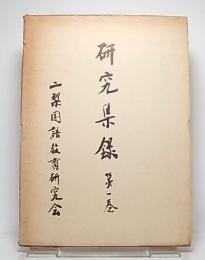 研究集録 第一巻
山梨国語教育研究会